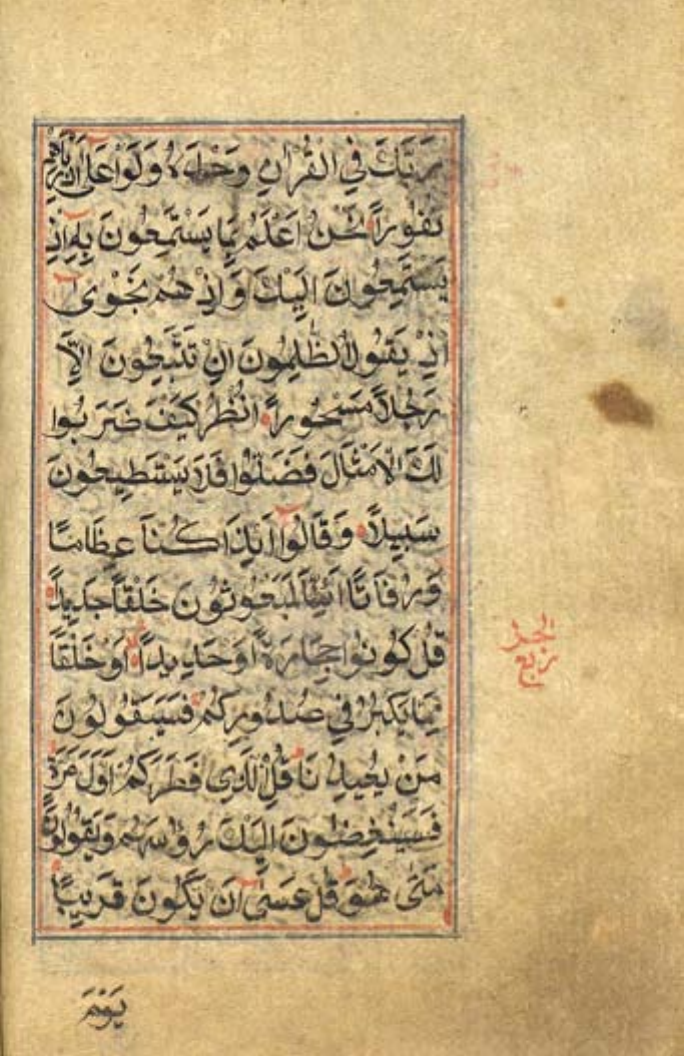 رَبَّكَ فِي الْقُرْاٰنِ وَحْدَهُ وَلَّوْا عَلٰٓى اَدْبَارِهِمْ
نُفُوْرًا نَحْنُ اَعْلَمُ بِمَا يَسْتَمِعُونَ بِهٖٓ اِذْ
يَسْتَمِعُونَ اِلَيْكَ وَاِذْ هُمْ نَجْوٰىٓ
اِذْ يَقُولُ الظّٰلِمُونَ اِنْ تَتَّبِعُونَ اِلَّا
رَجُلًا مَسْحُورًا اُنْظُرْ كَيْفَ ضَرَبُوا
لَكَ الْاَمْثَالَ فَضَلُّوا فَلَا يَسْتَطِيعُونَ
سَبِيلًا وَقَالُوٓا ءَاِذَا كُنَّا عِظَامًا
وَرُفَاتًا ءَاِنَّا لَمَبْعُوثُونَ خَلْقًا جَدِيدًا
قُلْ كُونُوا حِجَارَةً اَوْ حَدِيدًا اَوْ خَلْقًا
مِمَّا يَكْبُرُ فِي صُدُورِكُمْ فَسَيَقُولُونَ
مَنْ يُعِيدُنَا قُلِ الَّذِي فَطَرَكُمْ اَوَّلَ مَرَّةٍ
فَسَيُنْغِضُونَ اِلَيْكَ رُءُوسَهُمْ وَيَقُولُونَ
مَتٰى هُوَ قُلْ عَسٰىٓ اَنْ يَكُونَ قَرِيبًا
ربع
يَوْمَ